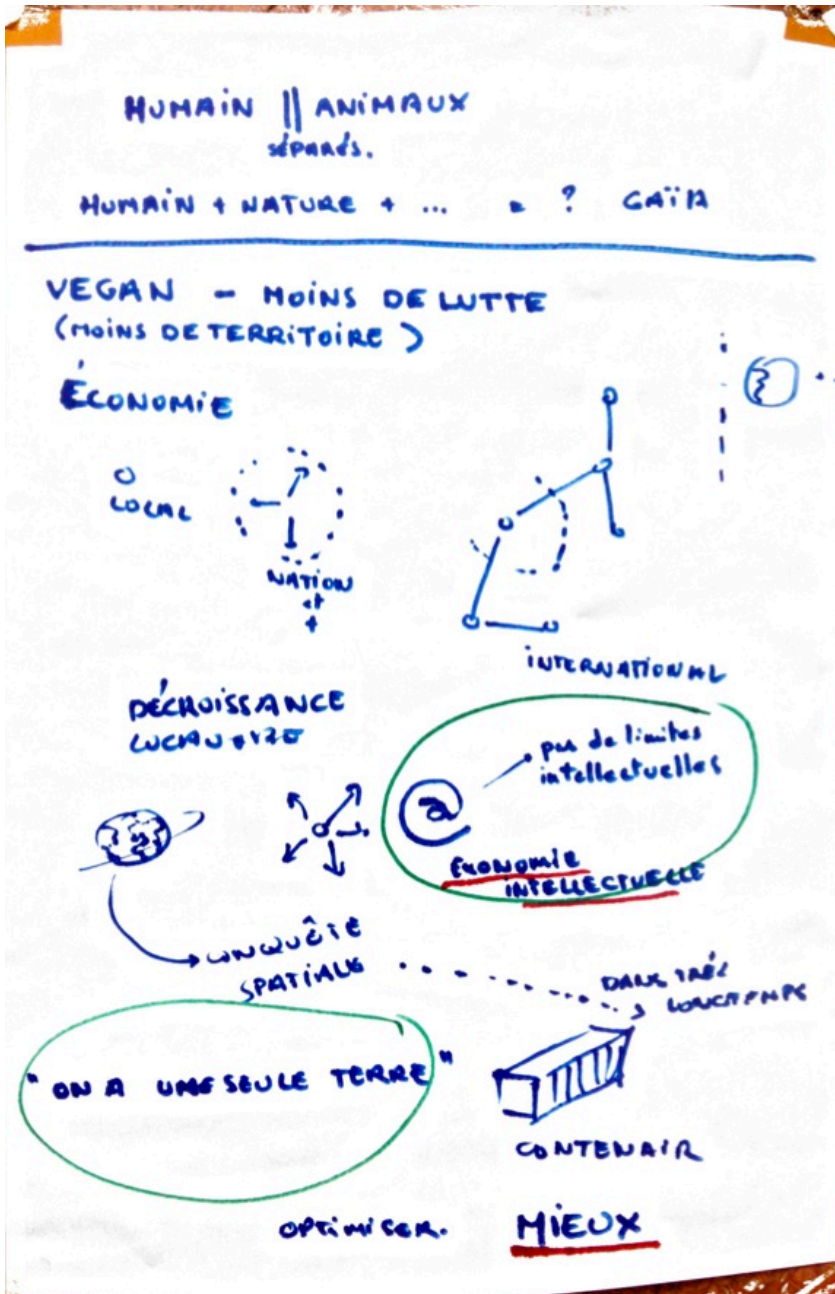 HUMAIN || ANIMAUX
séparés.
HUMAIN + NATURE + ... = ? GAÏA
VEGAN - MOINS DE LUTTE
(MOINS DE TERRITOIRE)
ÉCONOMIE
LOCAL
NATION
INTERNATIONAL
DÉCROISSANCE
pas de limites
intellectuelles
@
ÉCONOMIE
INTELLECTUELLE
CONQUÊTE
SPATIALE
DANS TRÈS
LONGTEMPS
"ON A UNE SEULE TERRE"
CONTENAIR
OPTIMISER. MIEUX